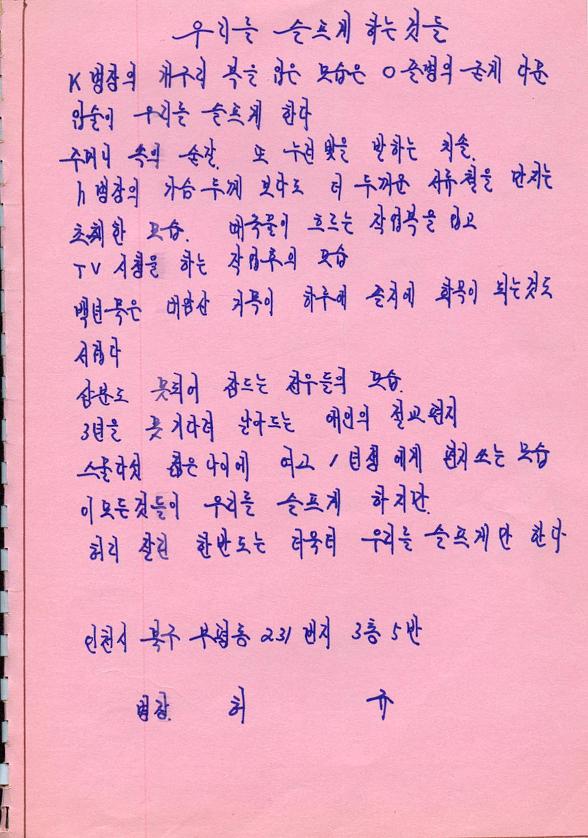 우리를 슬프게 하는것들
K병장의 개구리 복을 입은 모습은 O 졸병의 굳게 다문
입술이 우리를 슬프게 한다
주머니 속의 순잘. 또 누런 빛을 발하는 치솔.
h 병장의 가슴두께 보다도 더 두꺼운 서류철을 만지는
초췌한 모습. 때국물이 흐르는 작업복을 입고
TV 시청을 하는 작업후의 모습
백년묵은 대암산 거목이 하루에 졸지에 화목이 되는것도
서럽다
삼분도 못되어 잠드는 전우들의 모습.
3년을 못기다려 날아드는 애인의 절교편지
스물다섯 젊은나이에 여고 1년생 에게 편지쓰는 모습
이모든것들이 우리를 슬프게 하지만.
허리 잘린 한반도는 더욱더 우리를 슬프게만 한다
인천시 북구 부평동 231번지 3통 5반
병장. 허 규